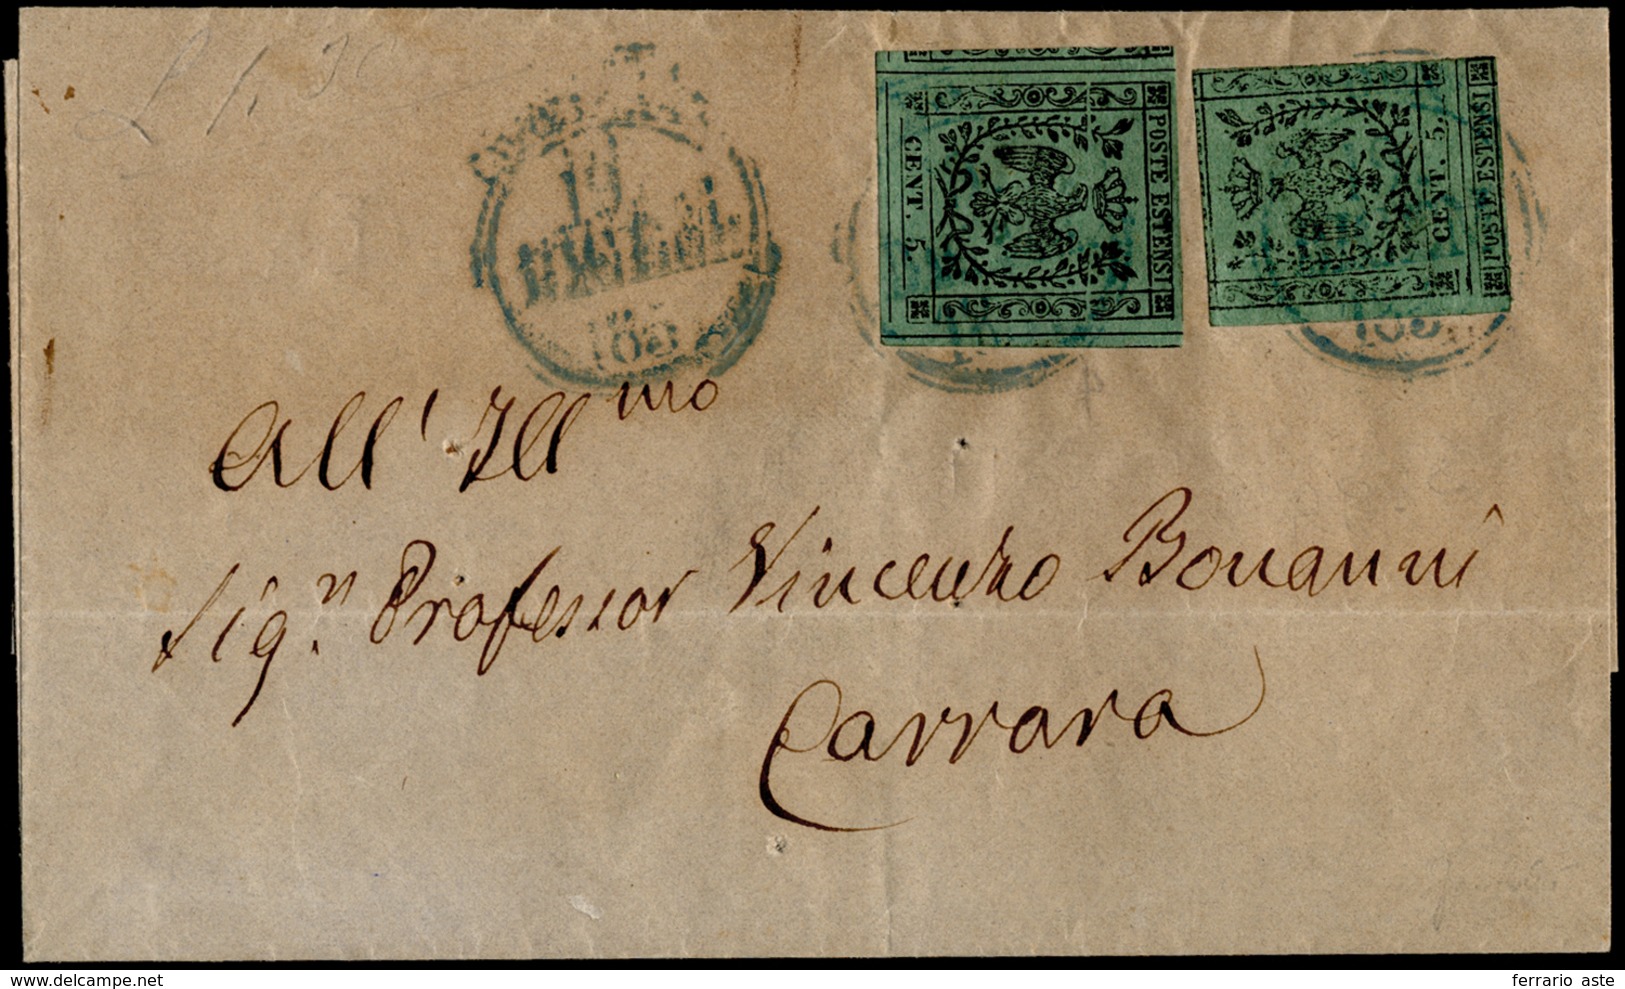 POSTE ESTENSI
CENT. 5.
POSTE ESTENSI
CENT. 5.
All' Ill mo
Sig.r Professor Vincenzo Bonanni
Carrara
ferrario aste